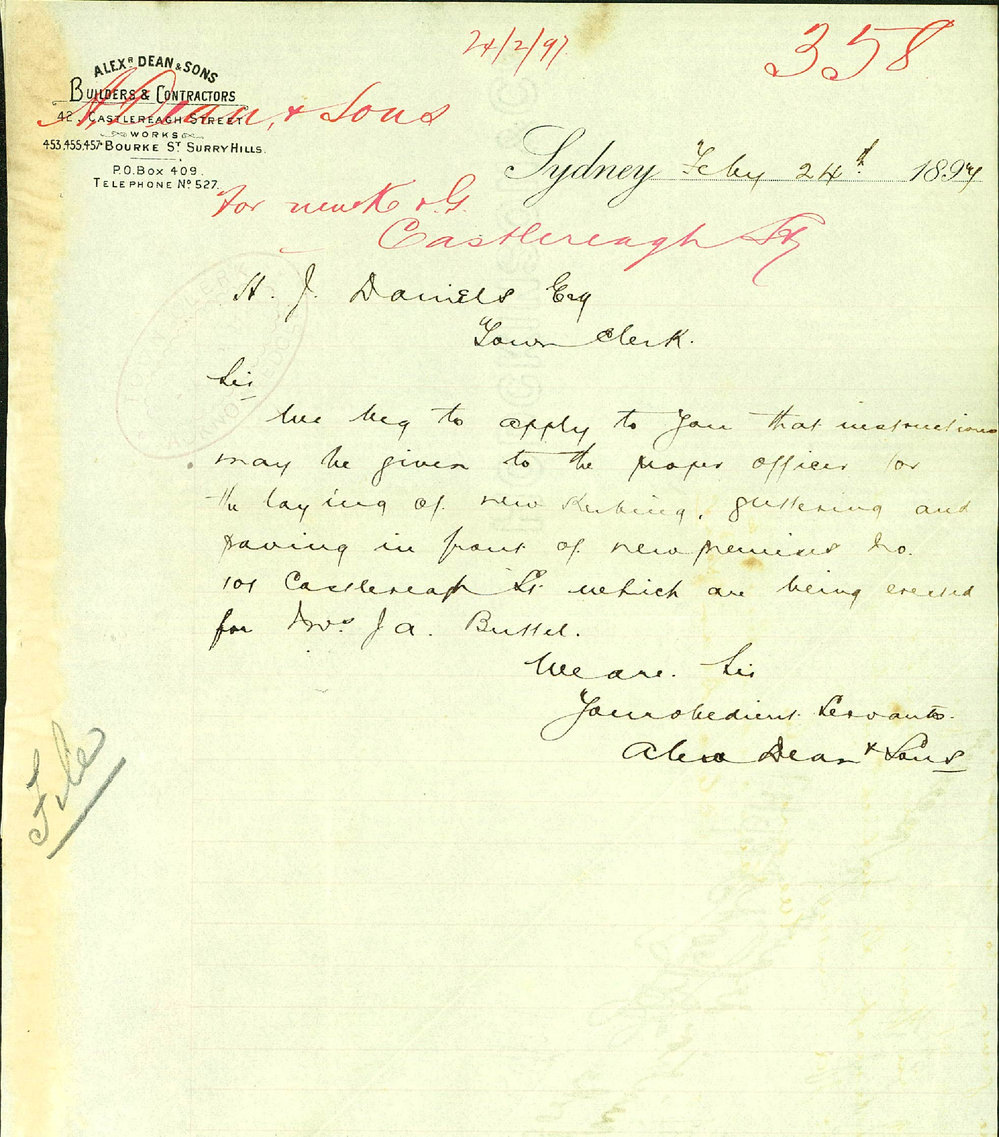 24/2/97
358
ALEXR DEAN & SONS
BUILDERS & CONTRACTORS
42, CASTLEREAGH STREET
WORKS
453,455,457 BOURKE ST SURRY HILLS.
P.O. BOX 409.
TELEPHONE No 527.
A. Dean, & Sons
Sydney Feby 24th 1897
for new K & G.
Castlereagh St
H. J. Daniels Esq
Town Clerk.
Sir
We beg to apply to you that instructions
may be given to the proper officer for
the laying of new Kerbing, guttering and
paving in front of new premises No.
101 Castlereagh St. which are being erected
for J A.
We are. Sir
Your obedient Servants.
Alex Dean & Sons
File